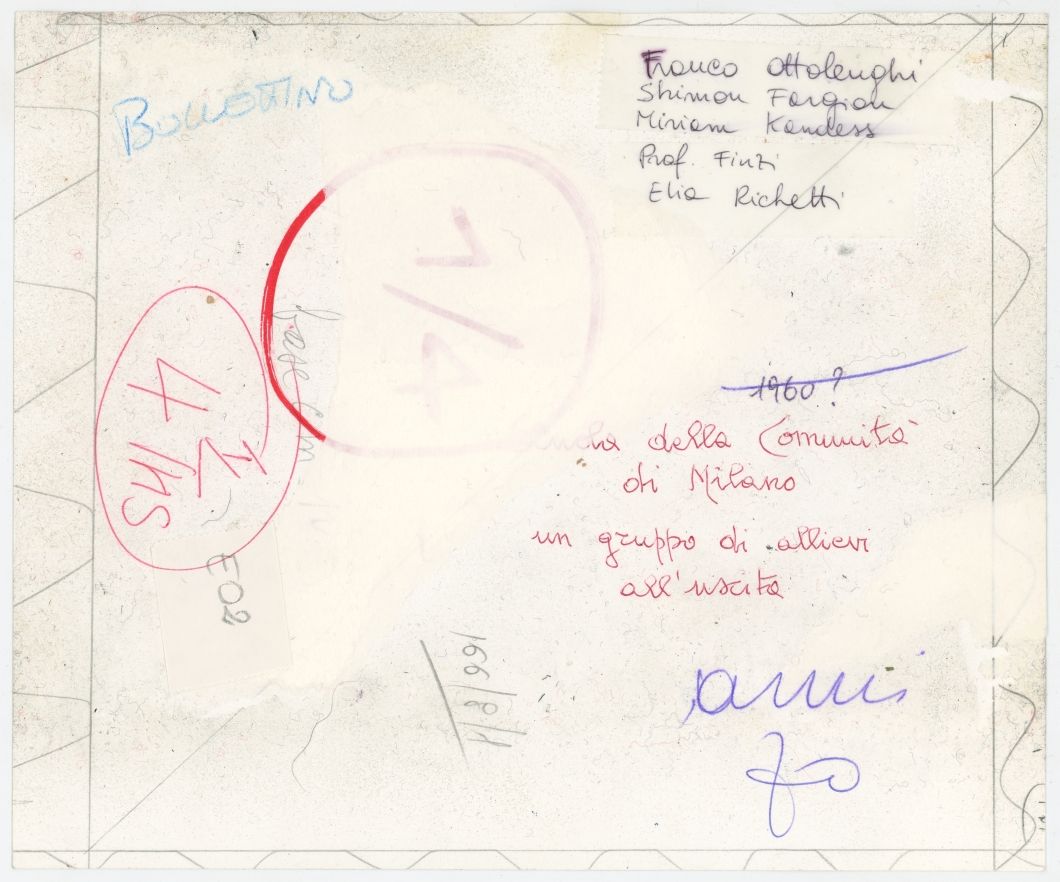 BOLLETTINO
Franco Ottolenghi
Shimon Fargion
Miriam Kandess
Prof. Finzi
Elia Richetti
1/4
base cm
1960?
della Comunità
di Milano
un gruppo di allievi
all'uscita
E02
166/8/1
anni
70